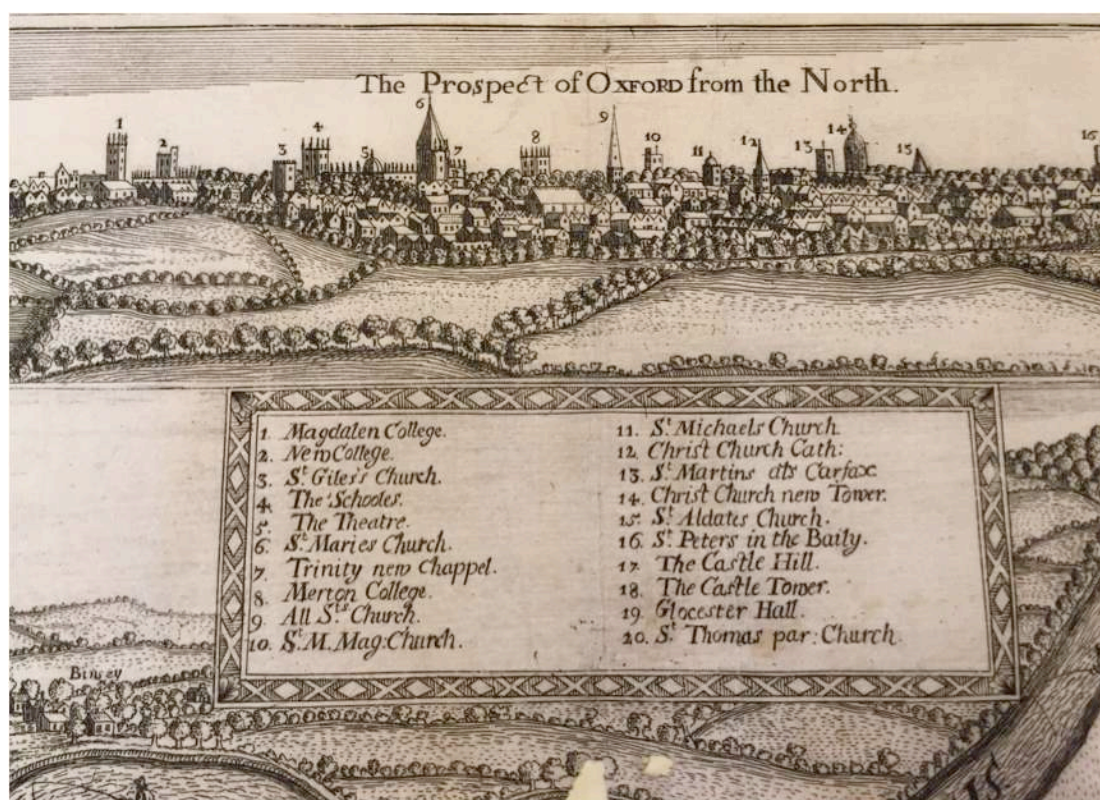 The Prospect of OXFORD from the North.
6
9
14
1
4
8
10
12
13
16
2
3
5
7
11
15
1. Magdalen College.
2. New College.
3. St. Giles's Church.
4. The Schooles.
5. The Theatre.
6. St. Maries Church.
7. Trinity new Chappel.
8. Merton College.
9. All Sts. Church.
10. St. M. Mag: Church.
11. St. Michaels Church
12. Christ Church Cath:
13. St. Martins als Carfax
14. Christ Church new Tower.
15. St. Aldates Church.
16. St. Peters in the Baily.
17. The Castle Hill.
18. The Castle Tower.
19. Glocester Hall.
20. St. Thomas par: Church
Binsey
IS